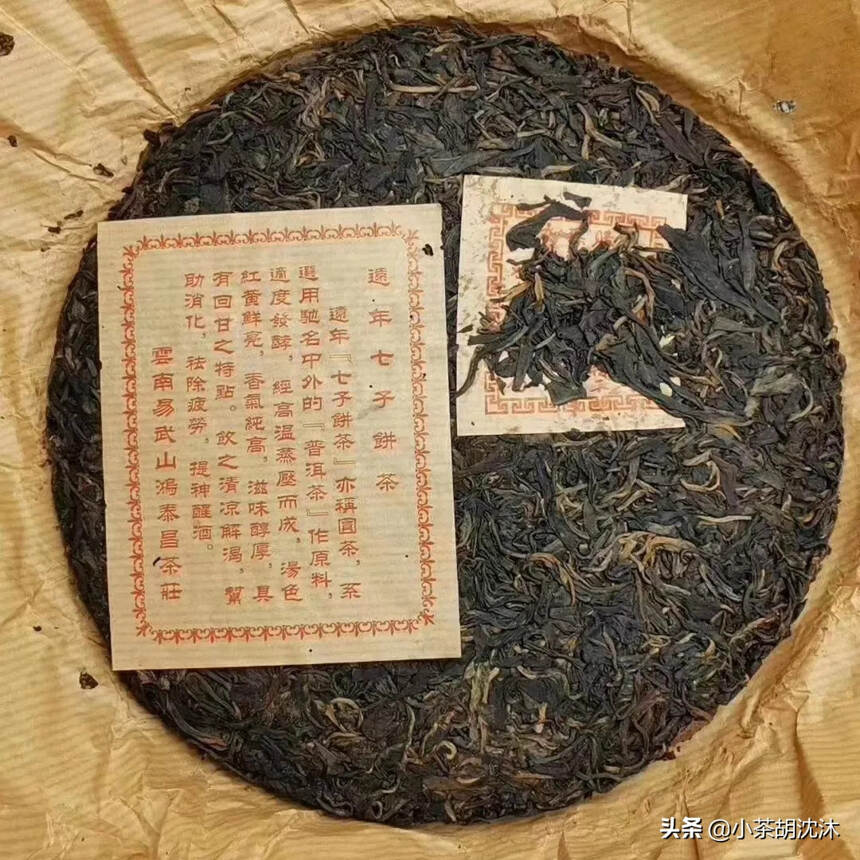 遠年七子餅茶
遠年『七子餅茶』亦稱圓茶，系
選用馳名中外的『普洱茶』作原料，
適度發酵，經高温蒸壓而成，湯色
紅黄鮮亮，香氣純高，滋味醇厚，具
有回甘之特點。飲之清凉解渴，幫
助消化，祛除疲勞，提神醒酒。
雲南易武山鴻泰昌茶莊
头条 @小茶胡沈沐